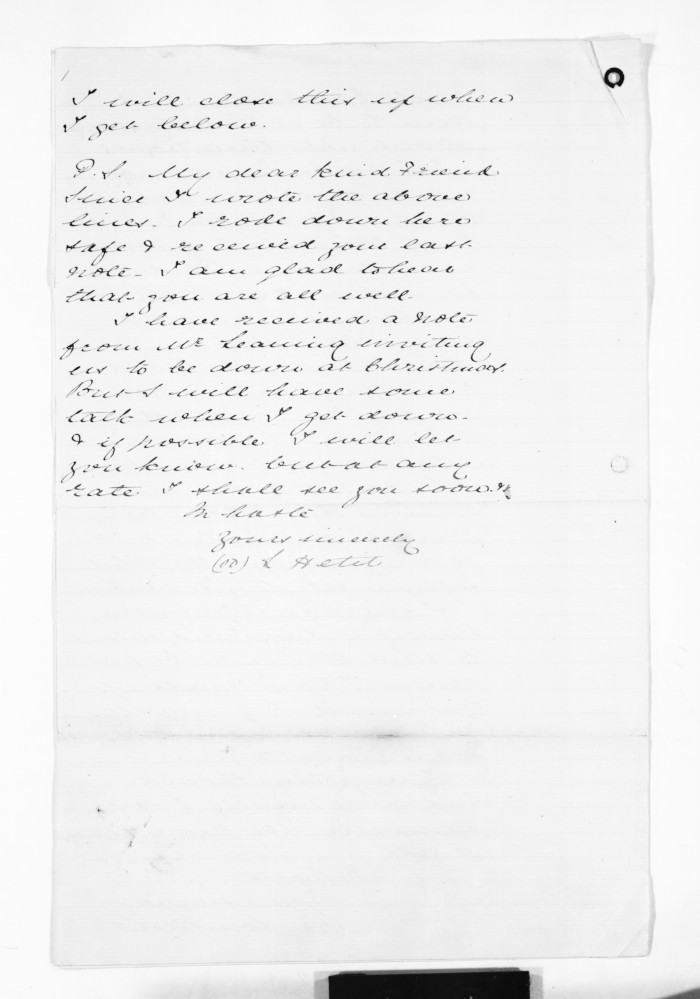 I will close this up when
I get below.
P.S. My dear kind Friend
Since I wrote the above
lines. I rode down here
safe & received your last
note. I am glad to hear
that you are all well.
I have received a note
from Mr Leaning inviting
us to be down at Christmas.
But I will have some
talk when I get down.
& if possible I will let
you know. but at any
rate I shall see you soon.
In haste
yours sincerely
L Hetit